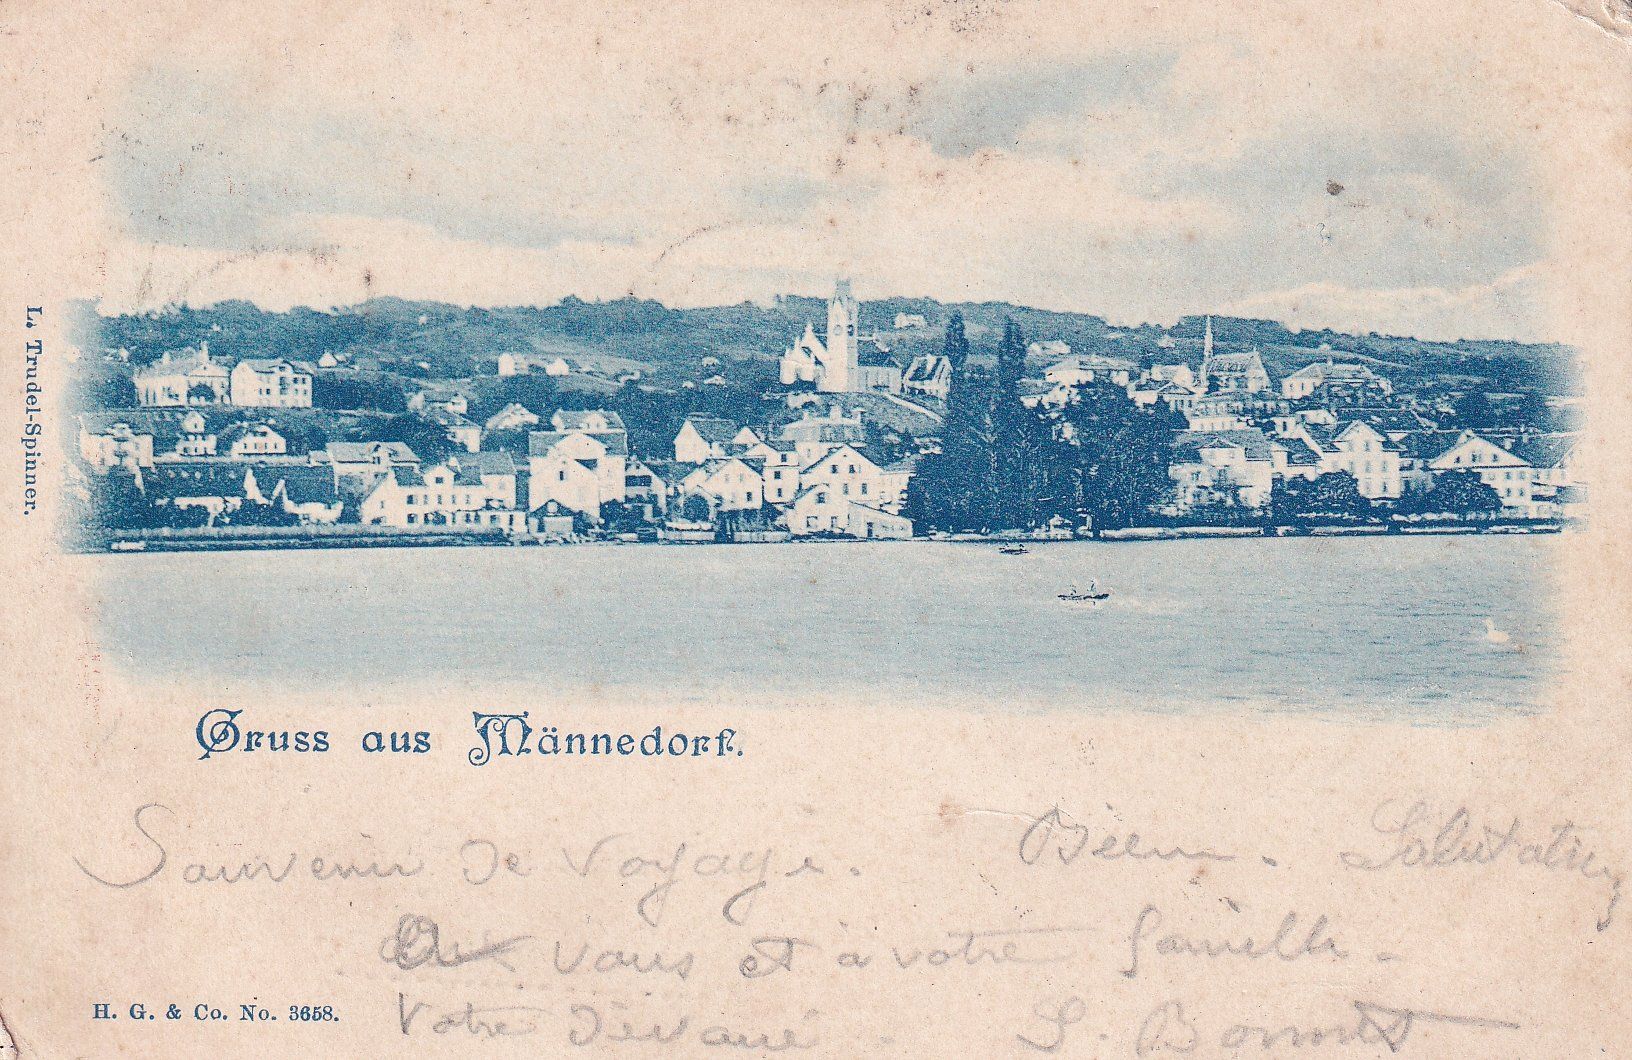 L. Trudel-Spinner.
Gruss aus Männedorf.
Souvenir de voyage. Bien. Salutations
à vous et à votre famille.
Votre dévoué S. Bonnet
H. G. & Co. No. 3658.